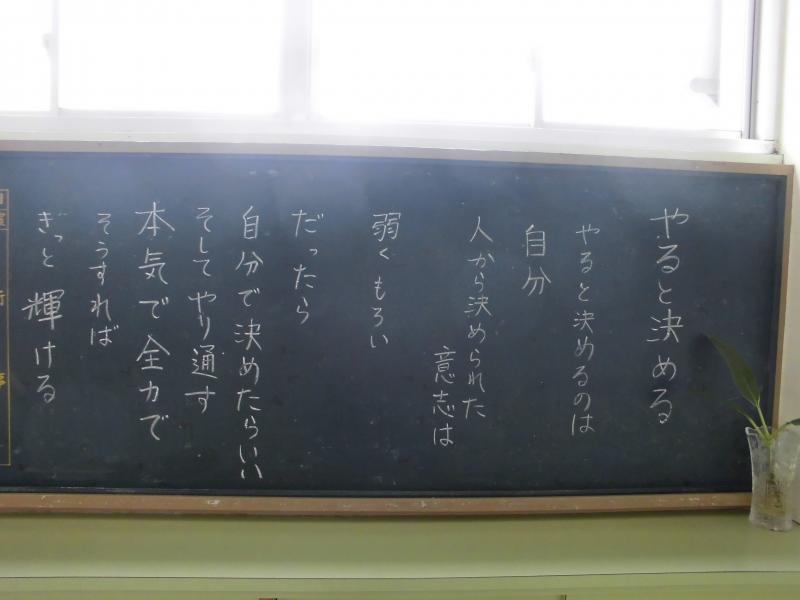 やると決める
やると決めるのは
自分
人から決められた
意志は
弱くもろい
だったら
自分で決めたらいい
そしてやり通す
本気で全力で
そうすれば
きっと輝ける